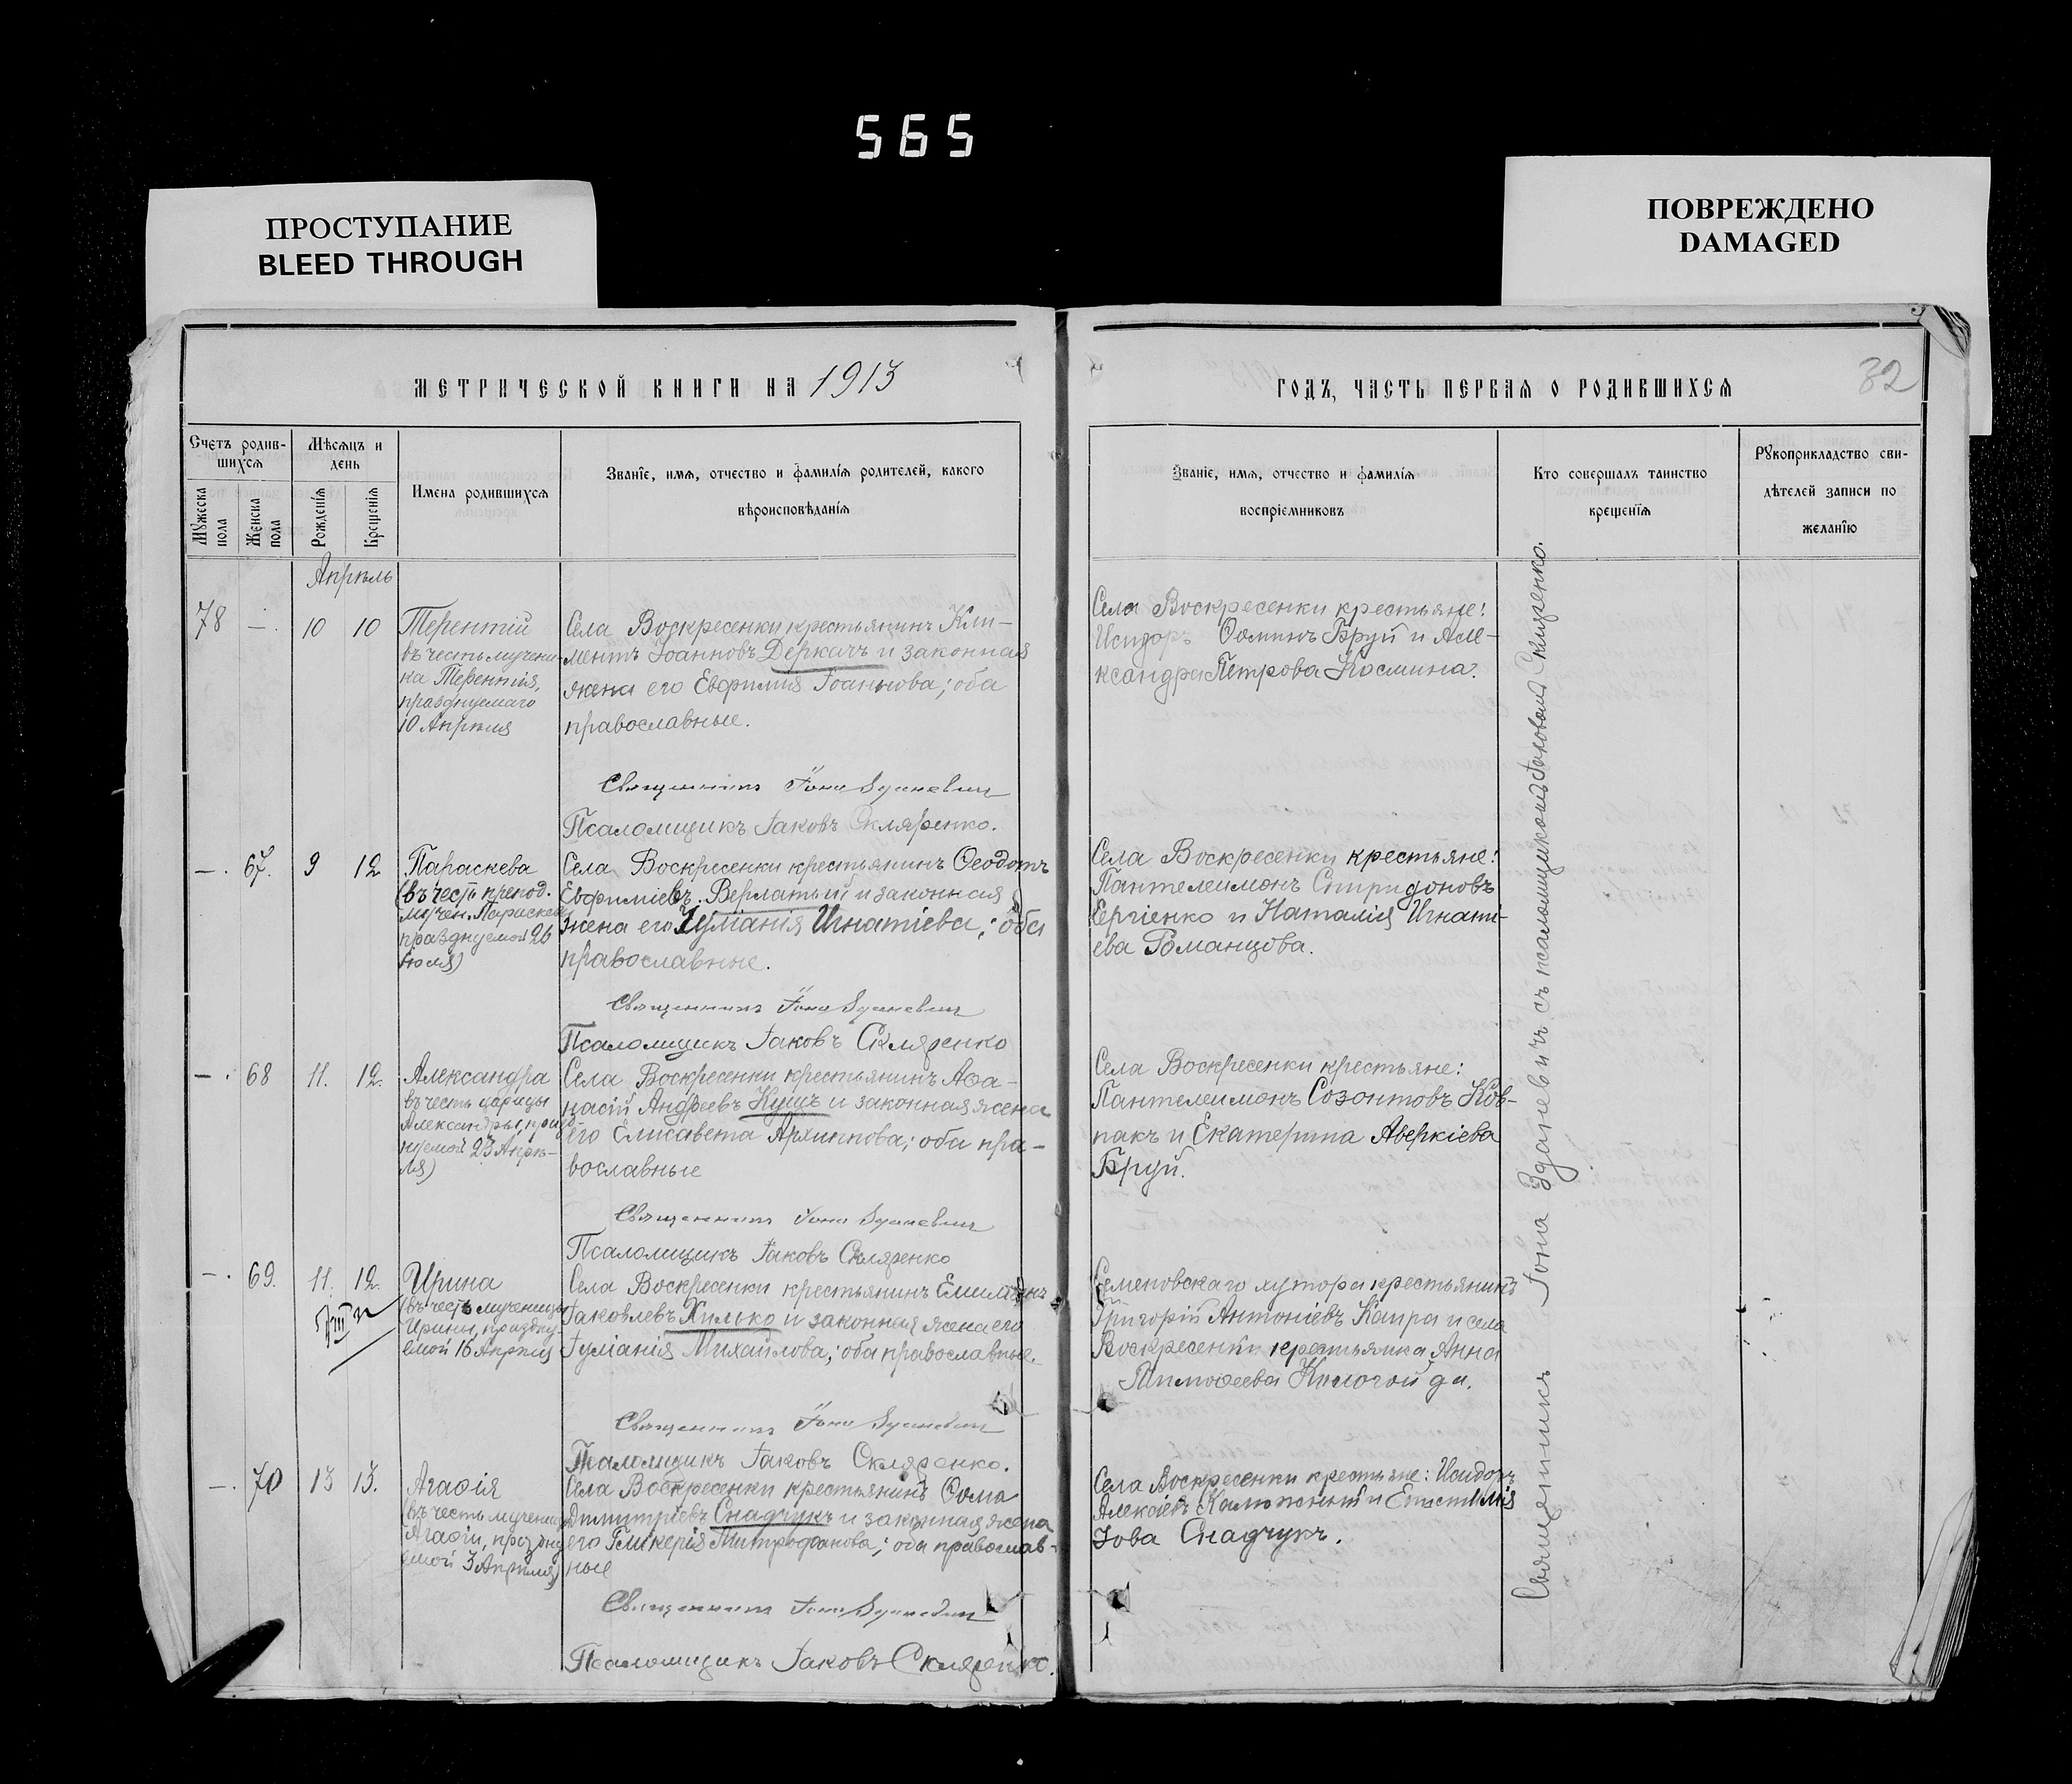 565
ПРОСТУПАНИЕ
BLEED THROUGH
ПОВРЕЖДЕНО
DAMAGED
МЕТРИЧЕСКОЙ КНИГИ НА 1913
Счетъ родив-
шихся
Мѣсяцъ и
день
Имена родившихся
Званіе, имя, отчество и фамилія родителей, какого
вѣроисповѣданія
Мужеска
пола
Женска
пола
Рожденія
Крещенія
Апрѣль
78 — 10 10
Терентій
въ честь мучени-
ка Терентія,
празднуемаго
10 Апрѣля
Села Воскресенки крестьянинъ Кли-
ментъ Іоанновъ Деркачъ и законная
жена его Евфимія Іоаннова; оба
православные.
Священникъ Іона Зданевич
Псаломщикъ Іаковъ Скляренко.
— 67. 9 12
Параскева
(въ честь препод.
мучен. Параскевы
празднуемой 26
Іюля)
Села Воскресенки крестьянинъ Ѳеодотъ
Евфиміевъ Верматый и законная
жена его Іуліанія Игнатіева; оба
православные.
Священникъ Іона Зданевич
Псаломщикъ Іаковъ Скляренко
— 68 11. 12.
Александра
въ честь царицы
Александры, празд
нуемой 23 Апрѣ-
ля)
Села Воскресенки крестьянинъ Аѳа-
насій Андреевъ Кущъ и законная жена
его Елисавета Архиппова; оба пра-
вославные
Священникъ Іона Зданевич
Псаломщикъ Іаковъ Скляренко
— 69. 11. 12.
Ирина
(въ честь мученицы
Ирины, праздну-
емой 16 Апрѣля
Села Воскресенки крестьянинъ Емиліанъ
Іаковлевъ Хилько и законная жена его
Іуліанія Михайлова; оба православные.
Священникъ Іона Зданевич
Псаломщикъ Іаковъ Скляренко.
— 70 13 13.
Агаѳія
(въ честь мученицы
Агаѳіи, праздну
емой 3 Апрѣля)
Села Воскресенки крестьянинъ Ѳома
Димитріевъ Снадчукъ и законная жена
его Гликерія Митрофанова; оба православ-
ные
Священникъ Іона Зданевич
Псаломщикъ Іаковъ Скляренко.
ГОДЪ, ЧАСТЬ ПЕРВАЯ О РОДИВШИХСЯ
32
Званіе, имя, отчество и фамилія
воспріемниковъ
Кто совершалъ таинство
крещенія
Рукоприкладство сви-
дѣтелей записи по
желанію
Села Воскресенки крестьяне:
Исидоръ Ѳоминъ Бруй и Але-
ксандра Петрова Космина.
Села Воскресенки крестьяне:
Пантелеимонъ Спиридоновъ
Сергіенко и Наталія Игнаті-
ева Романцова.
Села Воскресенки крестьяне:
Пантелеимонъ Созонтовъ Ков-
пакъ и Екатерина Аверкіева
Бруй.
Семеновскаго хутора крестьянинъ
Григорій Антоніевъ Каира и села
Воскресенки крестьянка Анна
Тимоѳеева
Села Воскресенки крестьяне: Исидоръ
Алексіевъ Каложный и Епистимія
Іова Снадчукъ.
Священникъ Іона Зданевичъ съ псаломщикомъ Іаковомъ Скляренко.